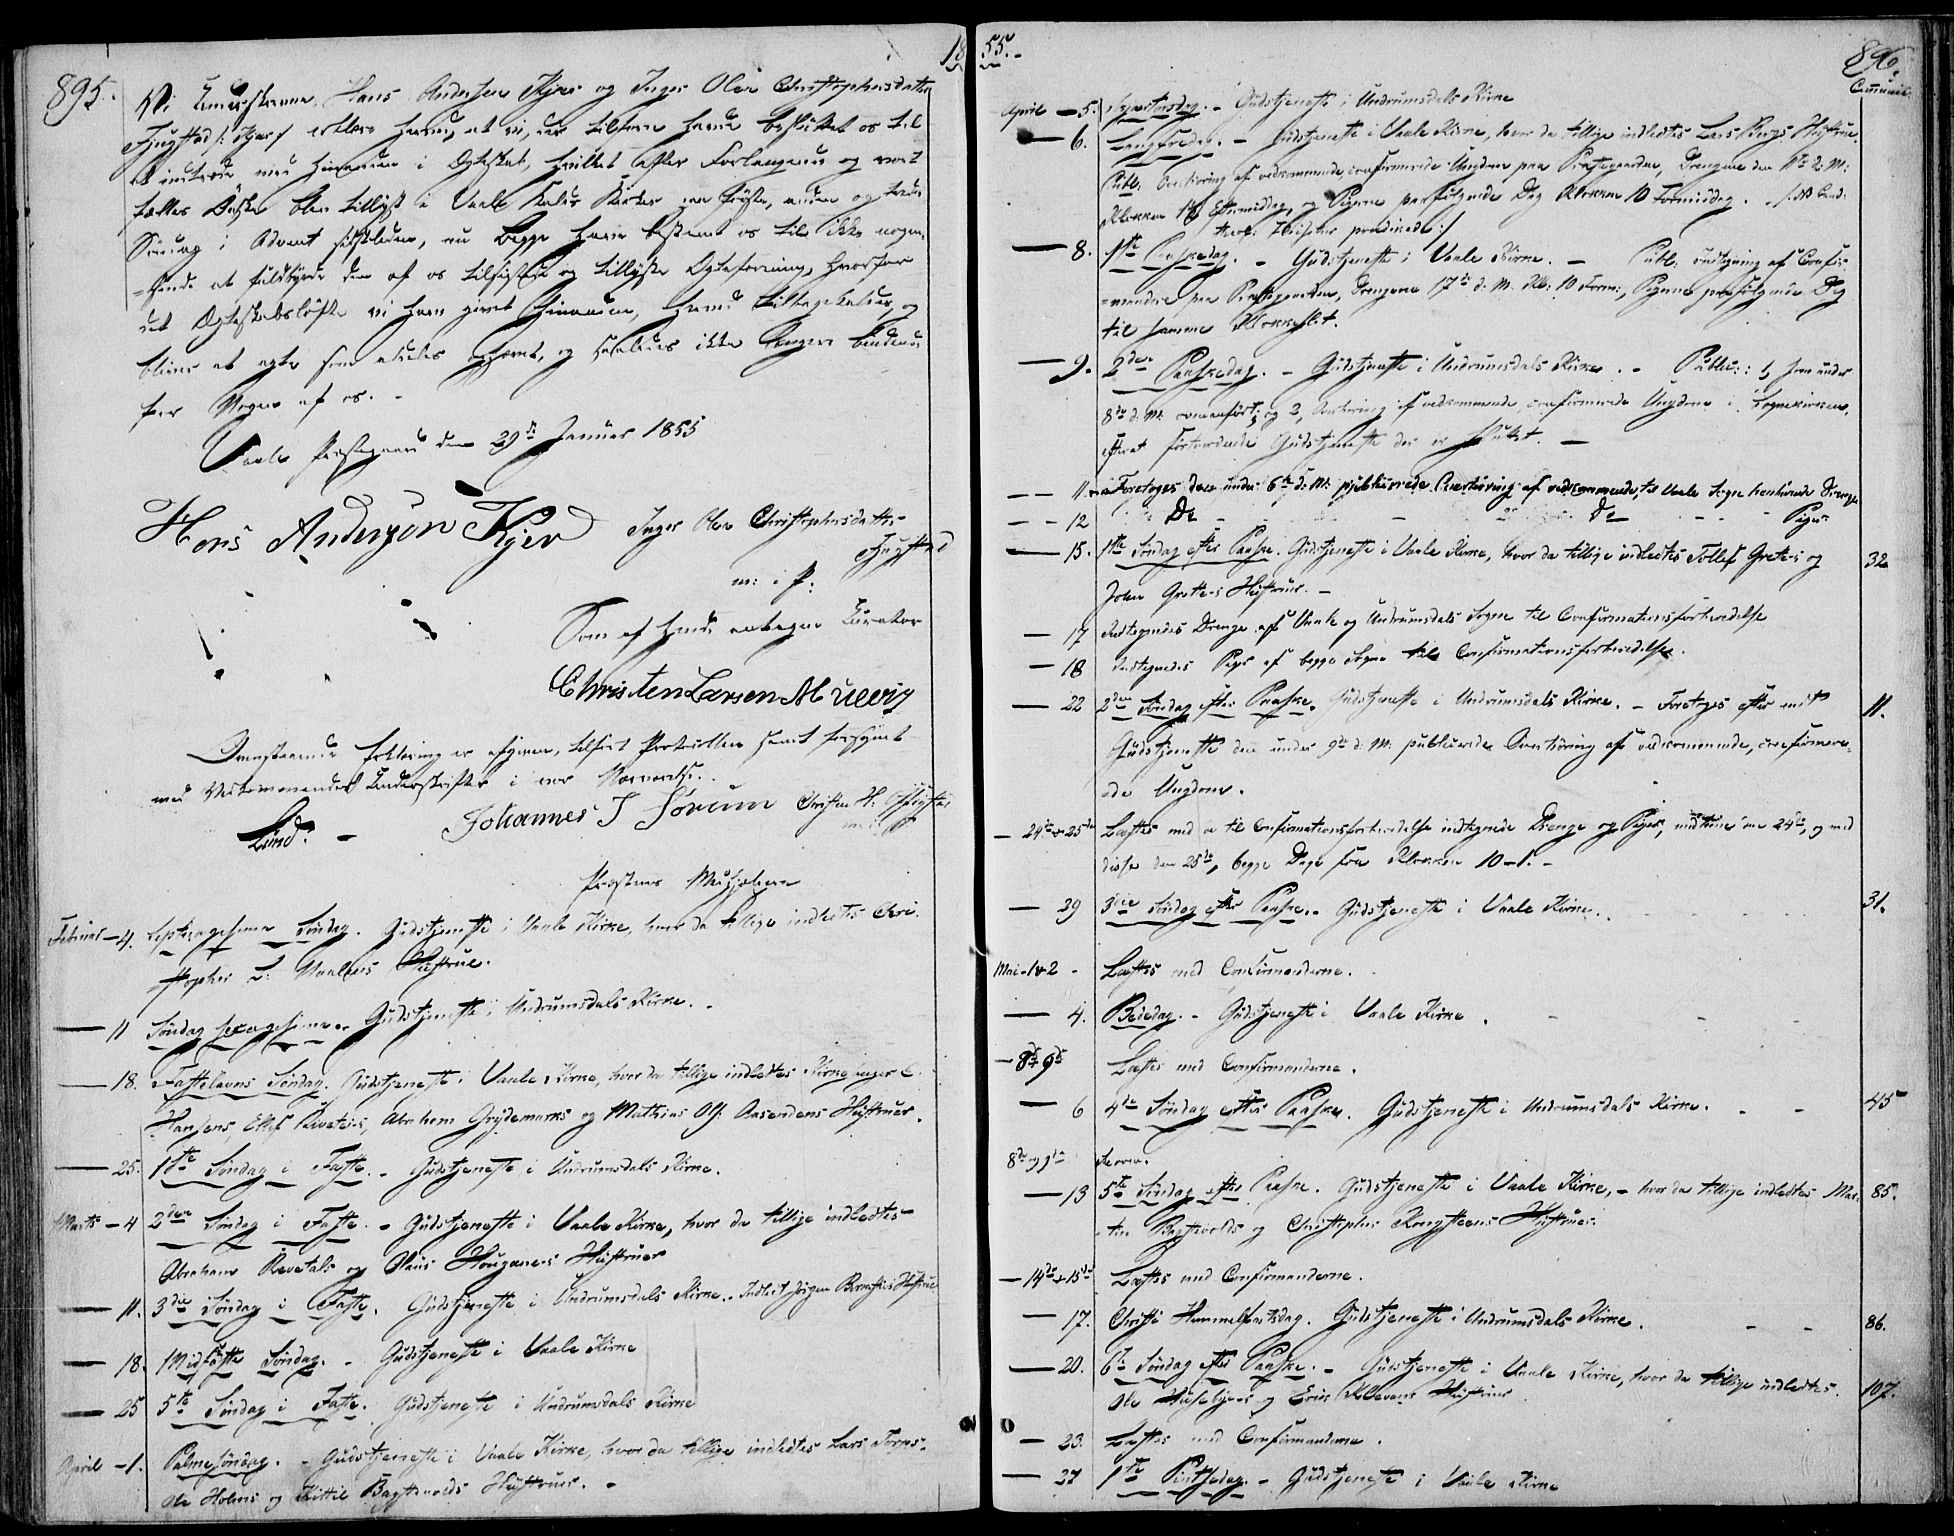 895.
18
Vi Undertegnede Hans Andersen Kjær og Inger Olea Christophersdatter
Fjugstad /: Kjær :/ erklære herved, at vi, der tilforn havde besluttet os til
at indtræde med hinanden i Ægteskab, hvilket efter Forlangende og vort
fælles Ønske blev tillyst i Vaale Kald Kirker paa første, anden og tredie
Søndag i Advent sidstleden, nu begge have bestemt os til ikke nogen-
sinde at fuldbyrde den af os tilsigtede og tillyste Ægteforening, hvorfor
det Ægteskabsløfte vi have givet hinanden, herved tilbagekaldes, og
bliver at agte som aldeles hævet, og saaledes ikke længere bindende
for Nogen af os. -
Vaale Præstegaard den 29de Januar 1855
Hans Anderson Kjær Inger Olea Christophersdatter
Fjugstad
m: i P:
Som af hende antagen Curator
Christen Larsen Mullvig
Ovenstaaende Erklæring er afgiven, tilført Protocollen samt forsynet
med Vedkommendes Underskrifter i vor Nærværelse.
Lund. - Johannes J Sørum Christen H:
Præstens Medhjælpere
Februar - 4. Septuagesima Søndag. Gudstjeneste i Vaale Kirke, hvor da tillige indledtes Chri-
stopher L: Hustrue.
11 Søndag sexagesima. Gudstjeneste i Undrumsdals Kirke. -
18. Fastelavns Søndag. Gudstjeneste i Vaale Kirke, hvor da tillige indledtes Kirkesanger C.
Hansens, Ellef, Abraham Grydemarks og Mathias Ols: Aasendens Hustruer.
25. 1ste Søndag i Faste. - Gudstjeneste i Undrumsdals Kirke.
Marts - 4 2den Søndag i Faste. - Gudstjeneste i Vaale Kirke, hvor da tillige indledtes
Abraham Revetals og Hans Hougane-s Hustruer
11. 3die Søndag i Faste. Gudstjeneste i Undrumsdals Kirke. Indledt Jørgen Hustrue
18. Midfaste Søndag. - Gudstjeneste i Vaale Kirke
25 5te Søndag i Faste. Gudstjeneste i Undrumsdals Kirke
April - 1. Palmesøndag. - Gudstjeneste i Vaale Kirke, hvor da tillige indledtes Lars
Ole Holms og Kittil Hustruer. -
55. -
896.
Communic:
April - 5. Skjærtorsdag. - Gudstjeneste i Undrumsdals Kirke
6. Langfredag. - Gudstjeneste i Vaale Kirke, hvor da tillige indledtes Lars Bergs Hustrue.
Publ: Overhøring af vedkommende, confirmerede Ungdom paa Præstegaarden, Drengene den 11te d: M:
Klokken Eftermiddag, og Pigerne paafølgende Dag Klokken 10 Formiddag. /: NB Cand:
theol: prædikede :/
8. 1ste Paaskedag. - Gudstjeneste i Vaale Kirke. - Publ: Indtegning af Confir-
mander paa Præstegaarden, Drengene 17de d: M: Kl: 10 Form:, Pigerne paafølgende Dag
til samme Klokkeslet.
9. 2den Paaskedag. - Gudstjeneste i Undrumsdals Kirke. - Public:: 1, som under
8de d: M: ovenanført; og 2, Overhøring af vedkommende, confirmerede Ungdom i Sognekirken,
efterat førstværende Gudstjeneste der er sluttet. -
11. Foretoges den under 6te d: M: publicerede Overhøring af vedkommende, til Vaale Sogn henhørende Drenge
12 Do Do Piger
15. 1ste Søndag efter Paaske. Gudstjeneste i Vaale Kirke, hvor da tillige indledtes Tollef Grette-s og 32
John Grette-s Hustruer. -
17 Indtegnedes Drenge af Vaale og Undrumsdals Sogne til Confirmationsforberedelse
18 Indtegnedes Piger af begge Sogne til Confirmationsforberedelse.
22 2den Søndag efter Paaske. Gudstjeneste i Undrumsdals Kirke. - Foretoges efter endt 11.
Gudstjeneste den under 9de d: M: publicerede Overhøring af vedkommende, confirmere-
de Ungdom.
24de & 25de Læstes med de til Confirmationsforberedelse indtegnede Drenge og Piger, med hine den 24de, og med
disse den 25de, begge Dage fra Klokken 10-1. -
29 3die Søndag efter Paaske. - Gudstjeneste i Vaale Kirke. 31.
Mai - 1 & 2 - Læstes med Confirmanderne. -
4. Bededag. - Gudstjeneste i Vaale Kirke.
8de & 9de Læstes med Confirmanderne.
6 4de Søndag efter Paaske. Gudstjeneste i Undrumsdals Kirke. - - 45
8de og 9de see over.
13 5te Søndag efter Paaske. Gudstjeneste i Vaale Kirke, - hvor da tillige indledtes Mar- 85.
og Christopher Kongsteens Hustruer.
14de & 15de Læstes med Confirmanderne.
17. Christi Himmelfartsdag. Gudstjeneste i Undrumsdals Kirke. - - 86.
20. 6te Søndag efter Paaske. - Gudstjeneste i Vaale Kirke, hvor da tillige indledtes 107.
Ole Husebye-s og Erik Klevens Hustruer
23. Læstes med Confirmanderne.
27 1ste Pintsedag. - Gudstjeneste i Vaale Kirke